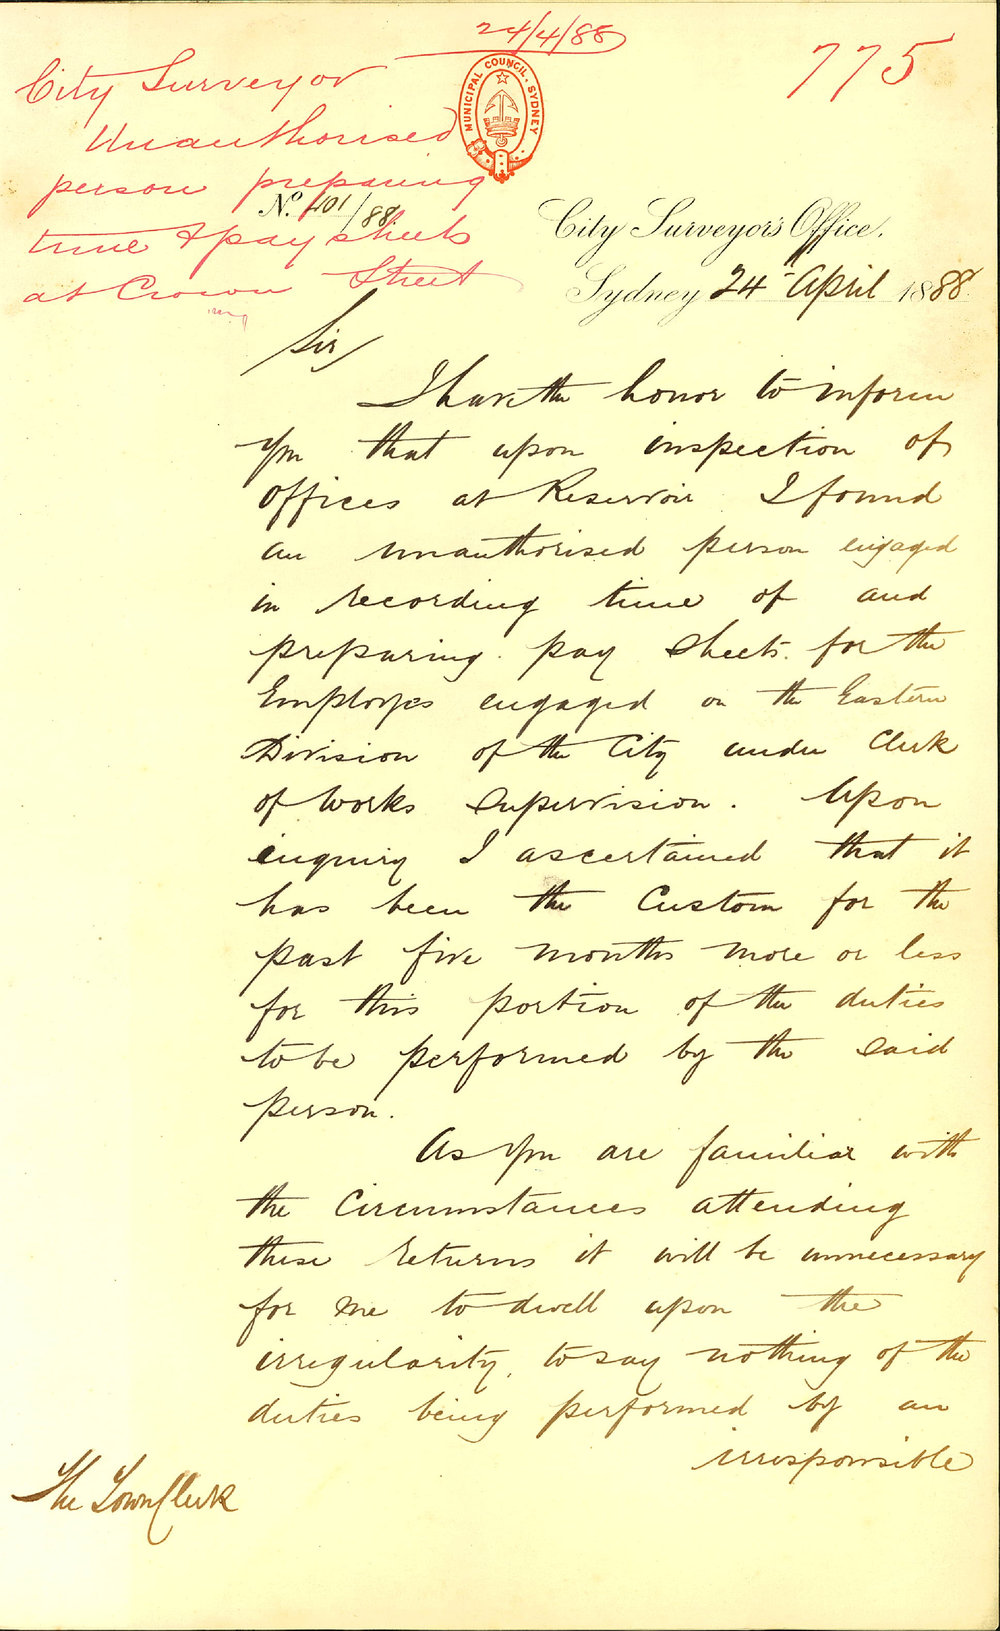 24/4/88
775
City Surveyor
Unauthorised
person preparing
time & pay sheets
at Crown Street
MUNICIPAL COUNCIL · SYDNEY
No. 401/88
City Surveyor's Office,
Sydney 24 April 1888
Sir/
I have the honor to inform
you that upon inspection of
offices at Reservoir I found
an unauthorised person engaged
in recording time of and
preparing pay sheets for the
Employes engaged on the Eastern
Division of the City under Clerk
of Works supervision. Upon
enquiry I ascertained that it
has been the Custom for the
past five months more or less
for this portion of the duties
to be performed by the said
person.
As you are familiar with
the Circumstances attending
these returns it will be unnecessary
for me to dwell upon the
irregularity, to say nothing of the
duties being performed by an
irresponsible
The Town Clerk